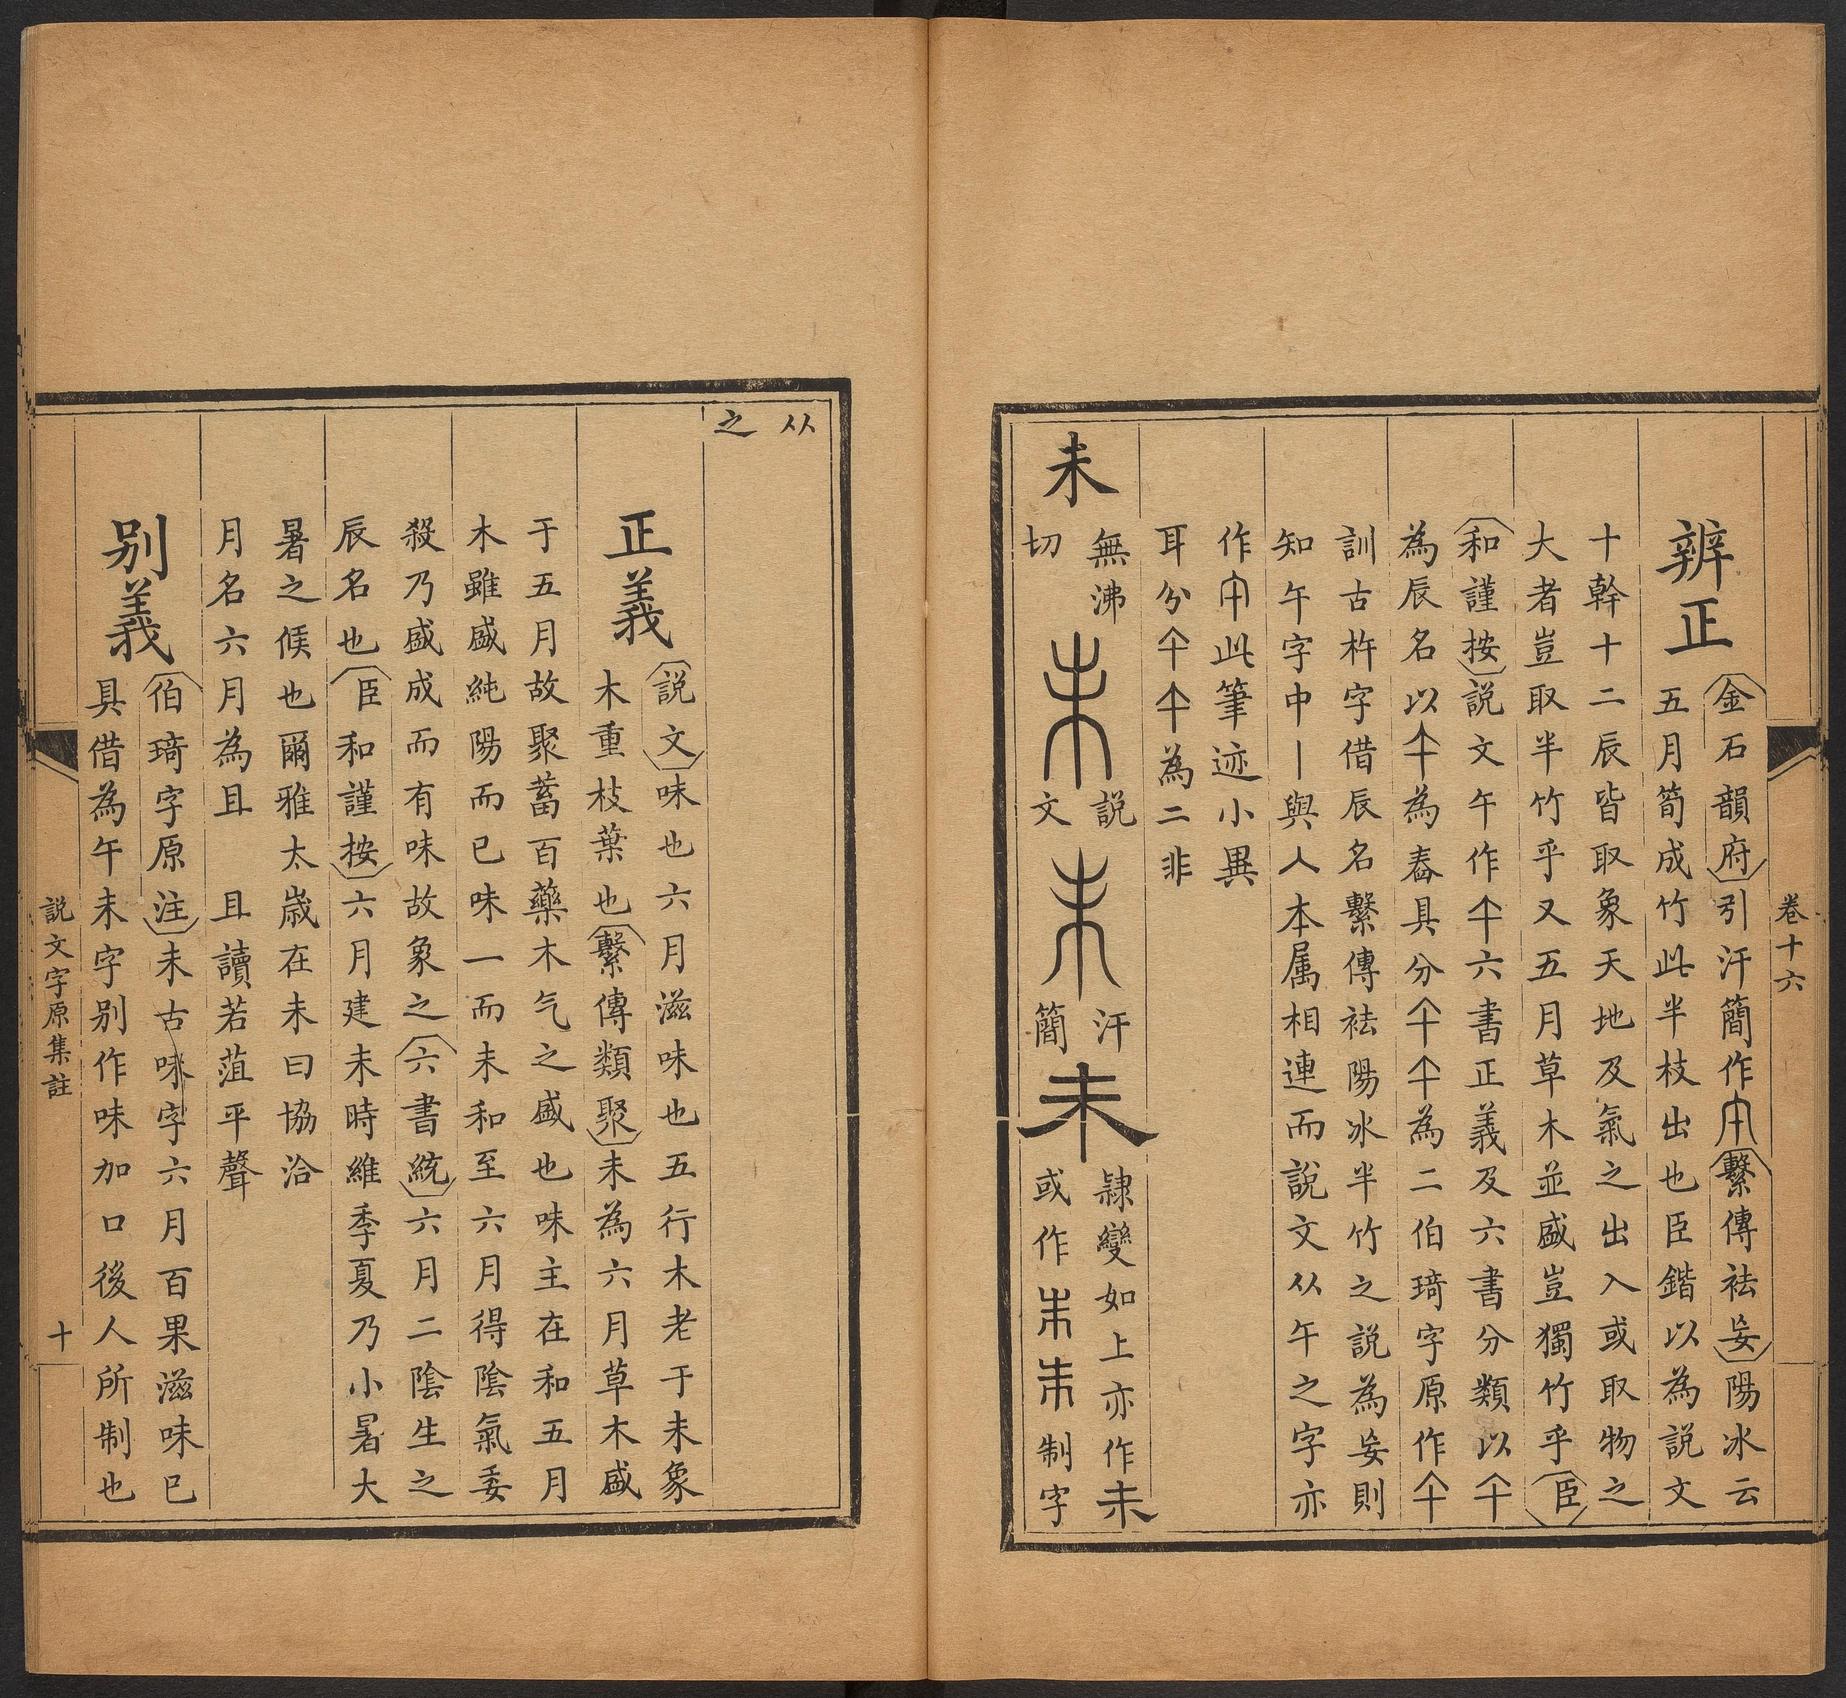 卷十六
辨正
金石韻府引汗簡作繫傳袪妄陽冰云
五月筍成竹此半枝出也臣鍇以為說文
十幹十二辰皆取象天地及氣之出入或取物之
大者豈取半竹乎又五月草木並盛豈獨竹乎臣
和謹按說文午作六書正義及六書分類以
為辰名以為舂具分為二伯琦字原作
訓古杵字借辰名繫傳袪陽冰半竹之說為妄則
知午字中丨與人本属相連而說文从午之字亦
作此筆迹小異
耳分為二非
未
無沸
切
說
文
汗
簡
未
隷變如上亦作未
或作制字
从
之
正義
說文味也六月滋味也五行木老于未象
木重枝葉也繫傳類聚未為六月草木盛
于五月故聚蓄百藥木气之盛也味主在和五月
木雖盛純陽而已味一而未和至六月得陰氣委
殺乃盛成而有味故象之六書統六月二陰生之
辰名也臣和謹按六月建未時維季夏乃小暑大
暑之候也爾雅太歳在未曰協洽
月名六月為且 且讀若菹平聲
別義
伯琦字原注未古味字六月百果滋味已
具借為午未字别作味加口後人所制也
說文字原集註
十